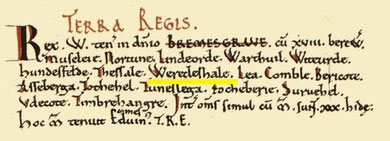 TERRA REGIS.
Rex .W. ten in dnio BREMESGRAVE. cu xviii. berew.
Museleie. Nortune. Lindeorde. Warthuil. Witeurde.
hundesfelde. Thessale. Weredeshale. Lea. Comble. Bericote.
Asseberga. Tothehel. Tuneslega. Focheberie. Suruehel.
Udecote. Timbrehangre. Int oms simul cu sunt xxx. hide.
hoc tenuit Eduin comes T.R.E.